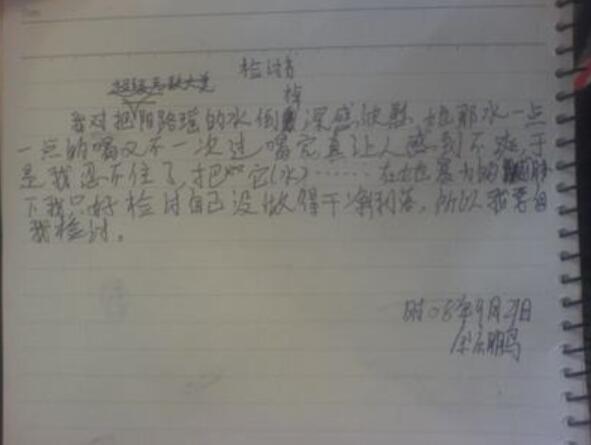 检讨书
我对把阳路瑶的水倒掉深感抱歉，她那水一点
一点的喝又不一次过喝完真让人感到不爽，于
是我忍不住了，把它(水)……在她暴力的
下我只好检讨自己没做得干净利落，所以我要自
我检讨。
时08年9月29日